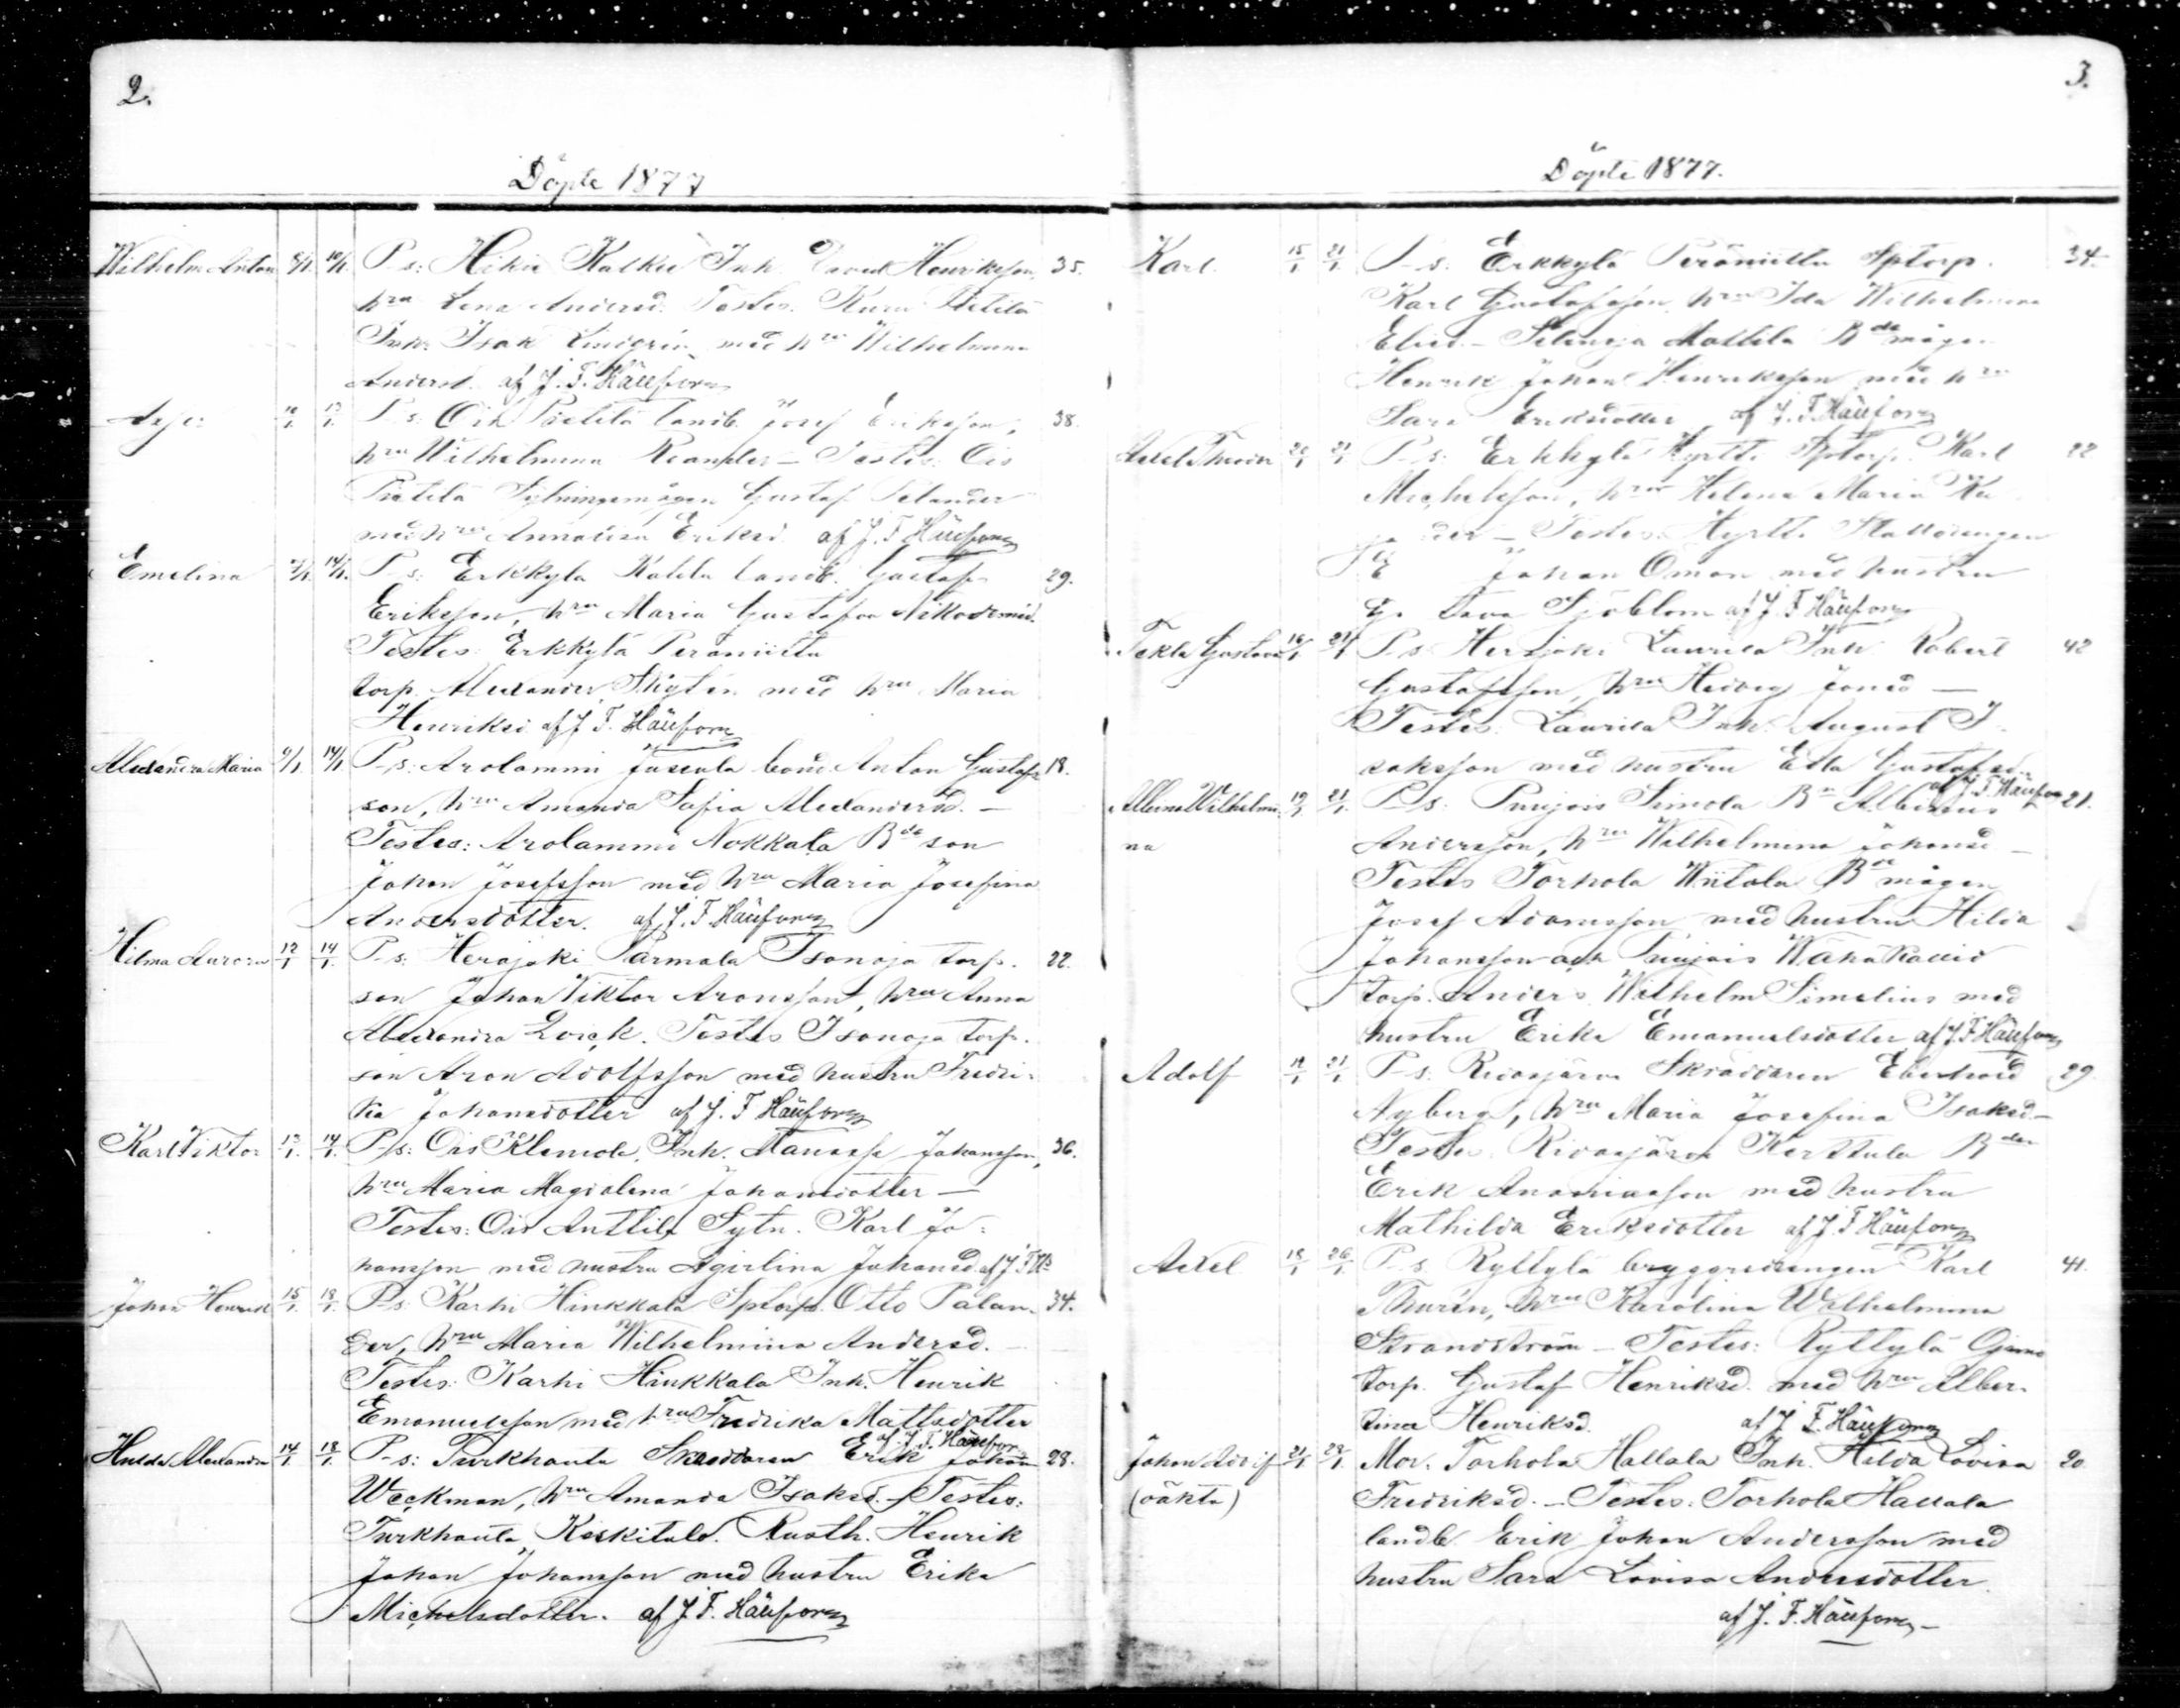 2.
Döpte 1877
Wilhelm Anton 8/1. 14/1. P-s: Hikiä Kalkki Inh. David Henriksson, 35.
hru Lena Andersd. Testes. Kuru
Inh. Isak Lindgrén med hru Wilhelmina
Andersd. af J. F. Hällfors
P-s: Ois Pietilä landb. Josef Eriksson, 38.
hru Wilhelmina - Testes: Ois
Pietilä Sytningsmågen Gustaf Selander
med hru Annalisa Eriksd. af J. F. Hällfors
Emelina 14/1. P-s: Erkkylä landb. Gustaf 29.
Eriksson, hru Maria Gustafva Nikodemid.
Testes: Erkkylä Perämiittu
torp. Alexander Skytén med hru Maria
Henriksd af J. F. Hällfors
Alexandra Maria 9/1. 14/1. P-s: Arolammi Jussula bond. Anton Gustafs- 18.
son, hru Amanda Sofia Alexandersd. -
Testes: Arolammi Nokkala Bde son
Johan Josefsson med hru Maria Josefina
Andersdotter. af J. F. Hällfors
Hilma Aurora 12/1 14/1. P-s: Herajoki Parmala Isonoja torp. 22.
son Johan Viktor Aronsson, hru Anna
Alexandra Lorck. Testes Isonoja torp.
son Aron Adolfsson med hustru Fredri-
ka Johansdotter af J. F. Hällfors
Karl Viktor 13/1. 14/1. P-s: Ois Klemola Inh. Manasse Johansson, 36.
hru Maria Magdalena Johansdotter -
Testes: Ois Anttila Sytn. Karl Jo-
hansson med hustru Agirlina Johansd. af J. F. Hs
Johan Henrik 15/1. 18/1. P-s: Karhi Hinkkala Sptorp. Otto Palan- 34.
der, hru Maria Wilhelmina Andersd. -
Testes: Karhi Hinkkala Inh. Henrik
Emanuelsson med hru Fredrika Mattsdotter
af J. F. Hällfors
Hulda Alexandra 14/1. 18/1. P-s: Turkhauta Skräddaren Erik Johan 28.
Weckman, hru Amanda Isaksd. - Testes:
Turkhauta Keskitalo. Rusth. Henrik
Johan Johansson med hustru Erika
Michelsdotter. af J. F. Hällfors
3.
Döpte 1877.
Karl 15/1 21/1 P-s: Erkkylä Perämiittu Sptorp. 34.
Karl Gustafsson, hru Ida Wilhelmina
Mattila Bde mågen
Henrik Johan Henriksson med hru
Sara Eriksdotter af J. F. Hällfors
Axel 20/1 21/1 P-s: Erkkylä Hyrtti Sptorp. Karl 22
Michelsson, hru Helena Maria
- Testes: Hyrtti
Johan Öman med hustru
Sjöblom af J. F. Hällfors
Tekla Gustava 16/1 21/1 P-s: Herajoki Laurila Inh. Robert 42
Gustafsson, hru Hedvig Jonsd -
Testes: Laurila Inh. August I-
saksson med hustru Etla Gustafsd.
af J. F. Hällfors
Albina Wilhelmi- 19/1 21/1. P-s: Puujois Simola Bn Albinus 21.
na Andersson, hru Wilhelmina Johansd -
Testes Torhola Wiitala Bde mågen
Josef Adamsson med hustru Hilda
Johansson och Puujois
torp. Anders Wilhelm Simelius med
hustru Erika Emanuelsdotter af J. F. Hällfors
Adolf 21/1 P-s: Ridasjärvi Skräddaren Eberhard 29.
Nyberg, hru Maria Josefina Isaksd -
Testes. Ridasjärvi Kerttula Bden
Erik Ananiasson med hustru
Mathilda Eriksdotter af J. F. Hällfors
Axel 18/1 26/1. P-s. Ryttylä bryggeridrengen Karl 41.
Thurén, hru Karolina Wilhelmina
Strandström - Testes: Ryttylä
torp. Gustaf Henriksd. med hru Alber-
tina Henriksd. af J. F. Hällfors
Johan Adolf 21/1 28/1. Mor. Torhola Hallala Inh. Hilda Lovisa 20
(oäkta) Fredriksd. - Testes: Torhola Hallala
landb. Erik Johan Andersson med
hustru Sara Lovisa Andersdotter.
af J. F. Hällfors -